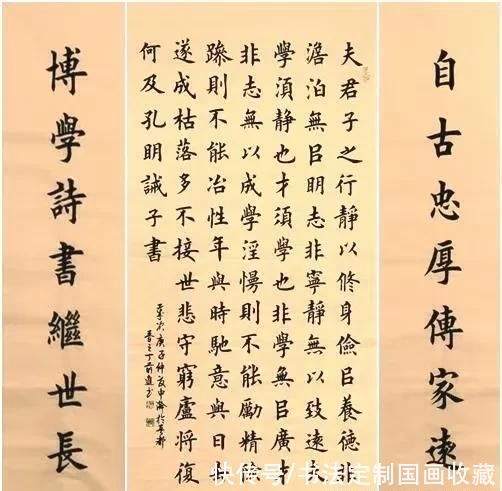 自古忠厚傳家遠
夫君子之行靜以修身儉㠯養德非
澹泊無㠯明志非寧靜無以致遠夫
學須靜也才須學也非學無㠯廣才
非志無以成學淫慢則不能勵精險
躁則不能冶性年與時馳意與日去
遂成枯落多不接世悲守窮廬將復
何及孔明誡子書
庚子仲夏
博學詩書繼世長
快传号/书法定制国画收藏